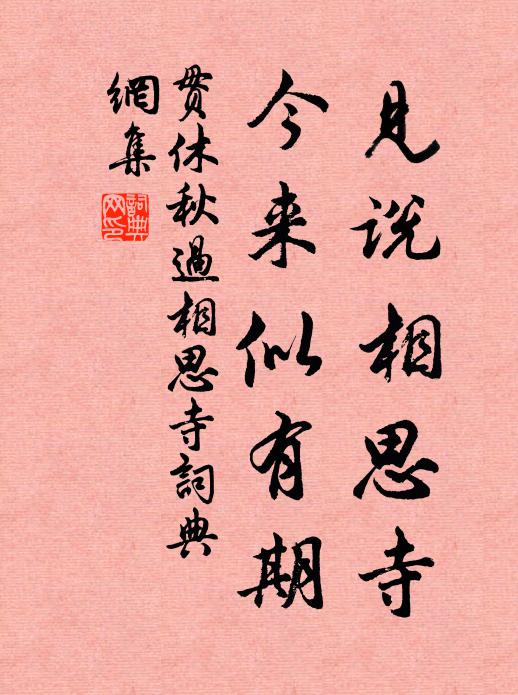 见说相思寺
今来似有期
贯休秋過相思寺詞典
網集
詞典
网印